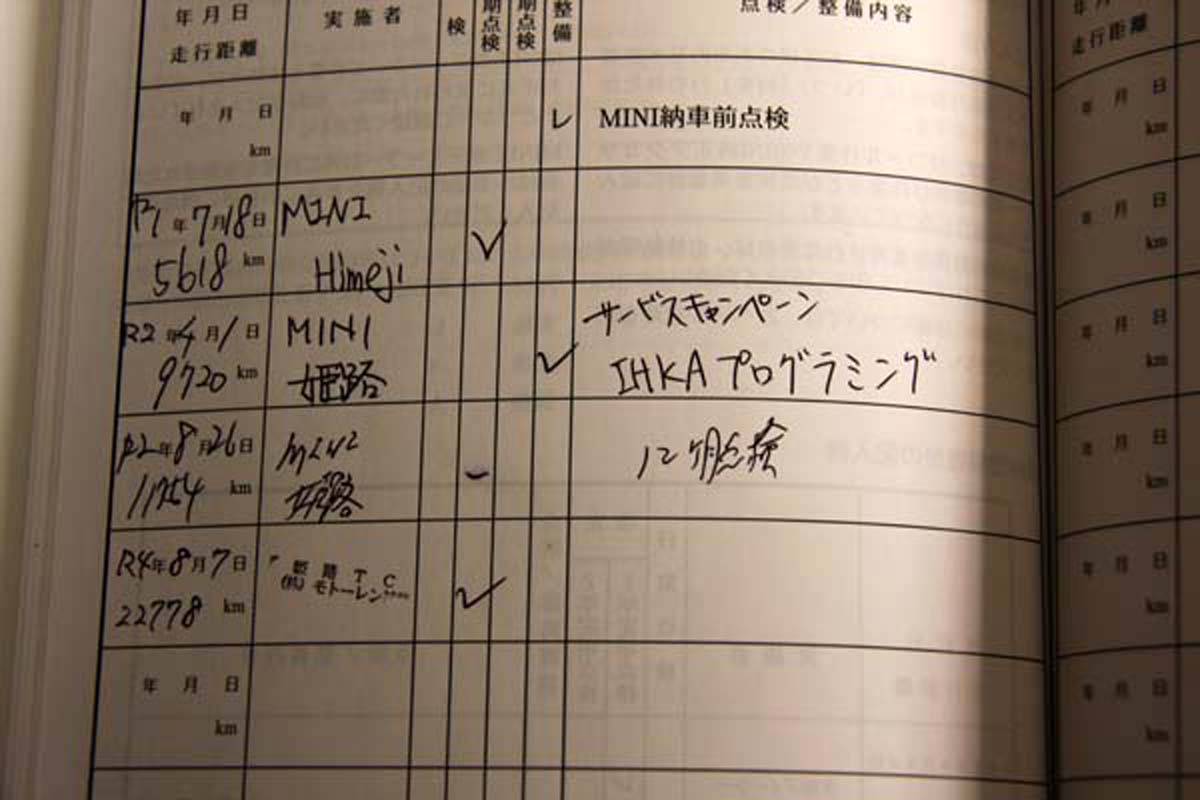 年月日 実施者 検 期点検 期点検 整備 点検/整備内容
走行距離
年 月 日 MINI納車前点検
km
R1年7月18日 MINI
5618 km Himeji
R2年4月1日 MINI サービスキャンペーン
9720 km 姫路 IHKAプログラミング
R2年8月26日 MINI 12ヶ月点検
11754 km 姫路
R4年8月7日 姫路TC
22778 km (株)モトーレン
年 月 日
km
年月日
走行距離
年 月 日
km
年 月 日
km
年 月 日
km
年 月 日
km
年 月 日
km
年 月 日
km